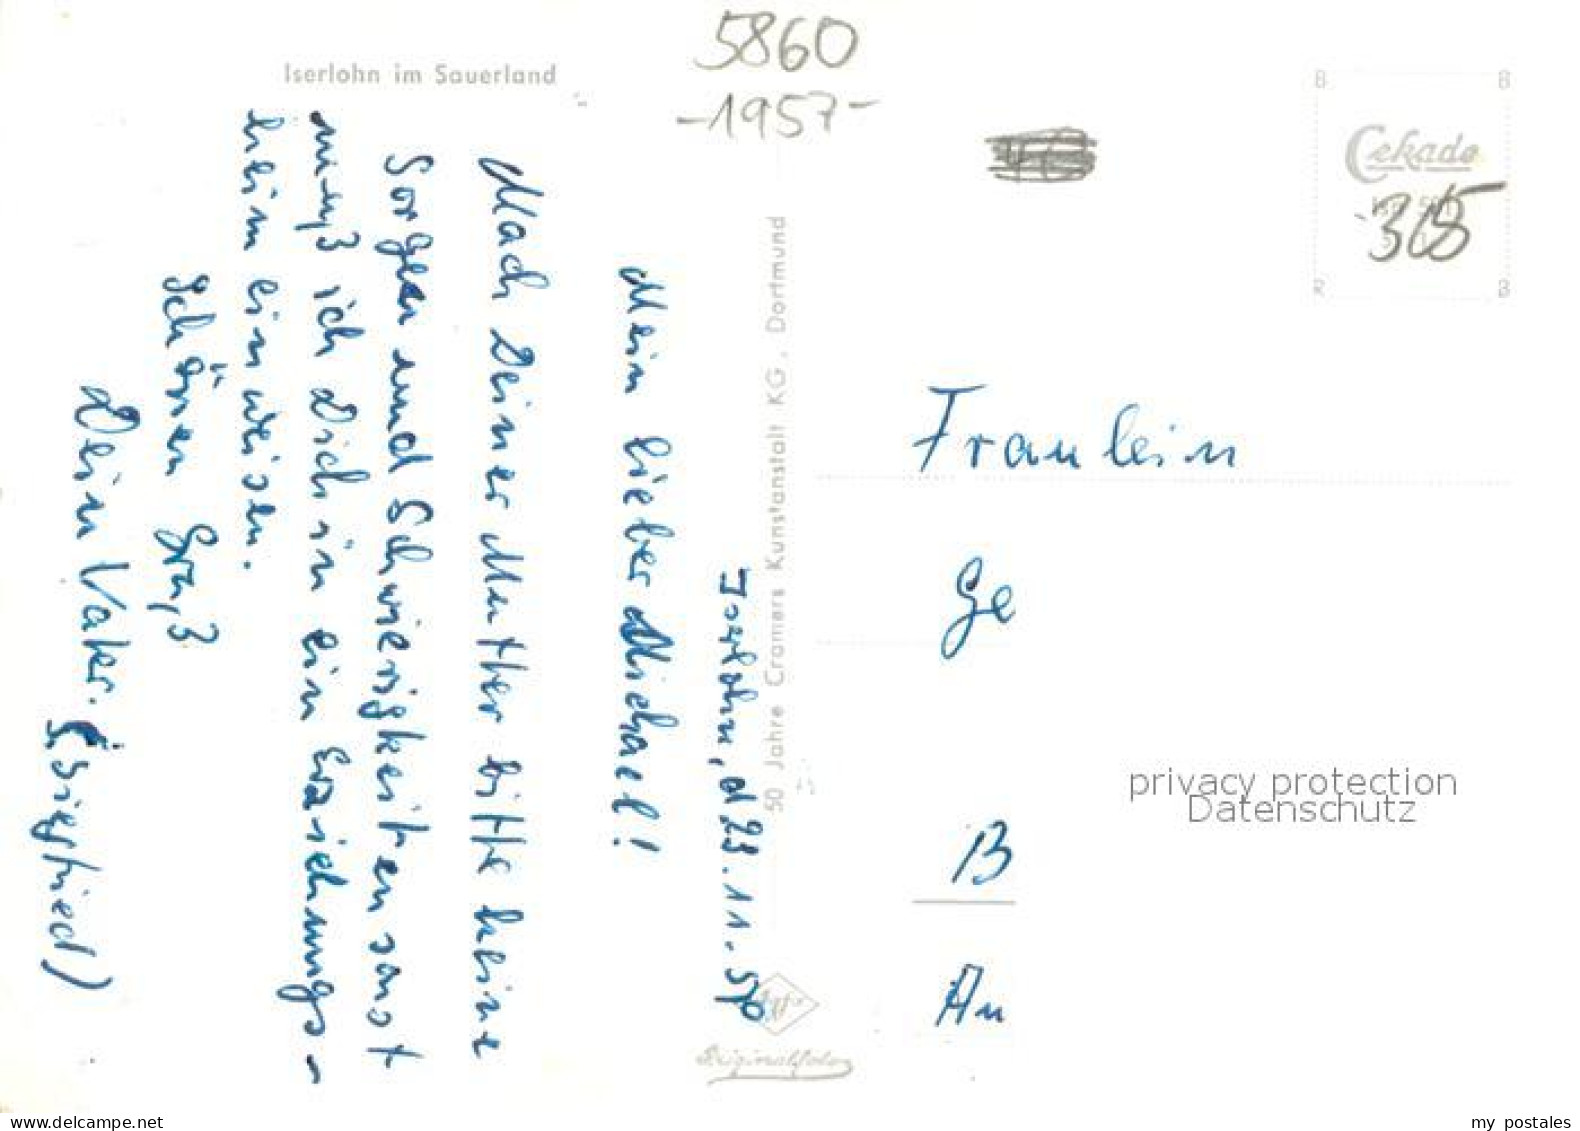 Iserlohn im Sauerland
5860
-1957-
Iserlohn, d 23.11.
Mein lieber Michael!
Mach Deiner Mutter bitte keine
Sorgen und Schwierigkeiten sonst
muß ich Dich in ein Erziehungs-
heim einweisen.
Schönen Gruß
Dein Vater.
(Siegfried)
50 Jahre Cramers Kunstanstalt KG. Dortmund
Originalfoto
Cekade
Fraulein
Ge
B
An
privacy protection
Datenschutz
www.delcampe.net
my postales